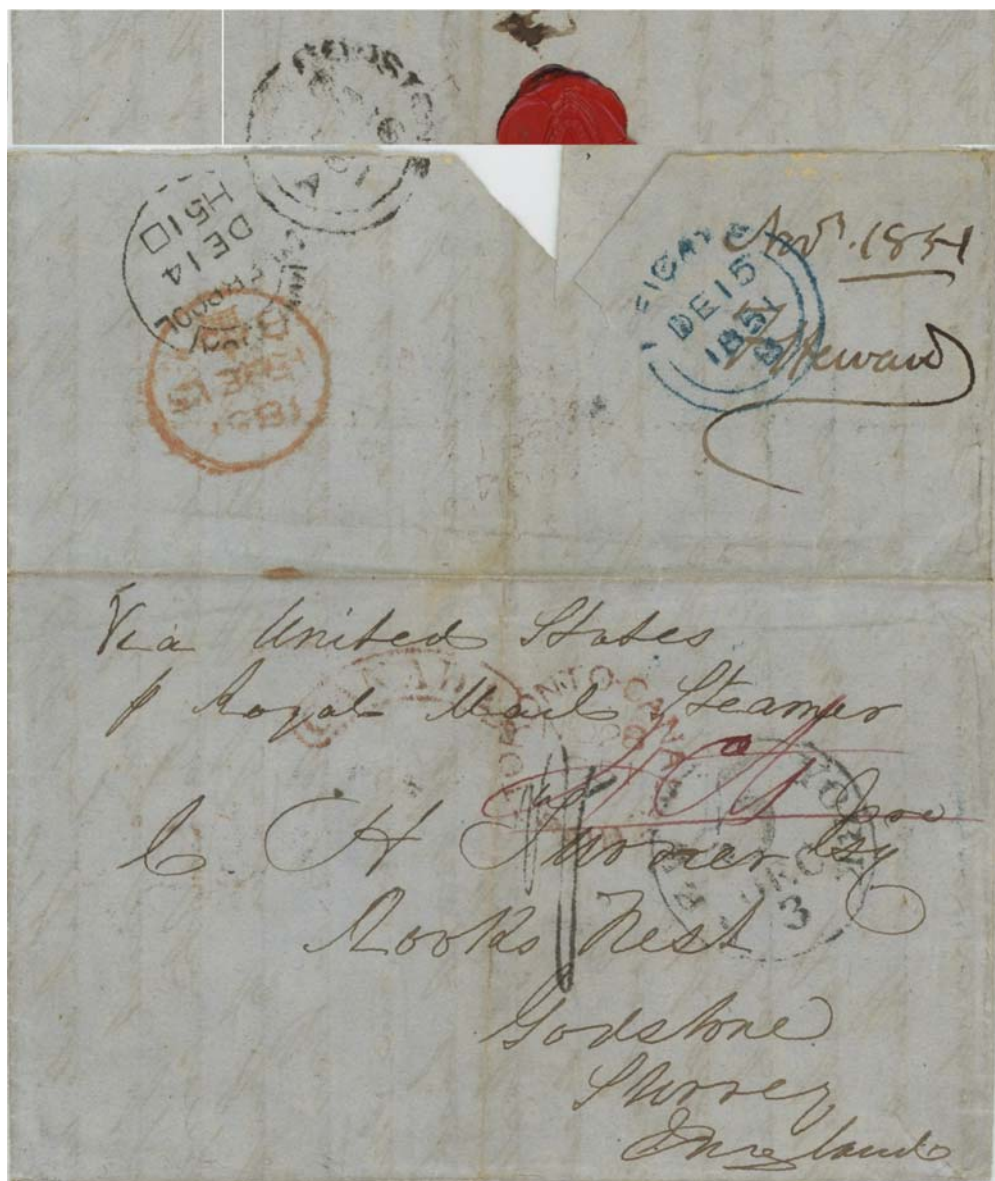 GODSTONE
LIVERPOOL
DE 14
H51O
DE 15
1851
REIGATE
DE 15
1851
Novr. 1851
Steward
Via United States
p Royal Mail Steamer
CANADA
TORONTO CANADA
C H Turner Esq
NEW YORK
DEC
3
Rooks Nest
Godstone
Surrey
England